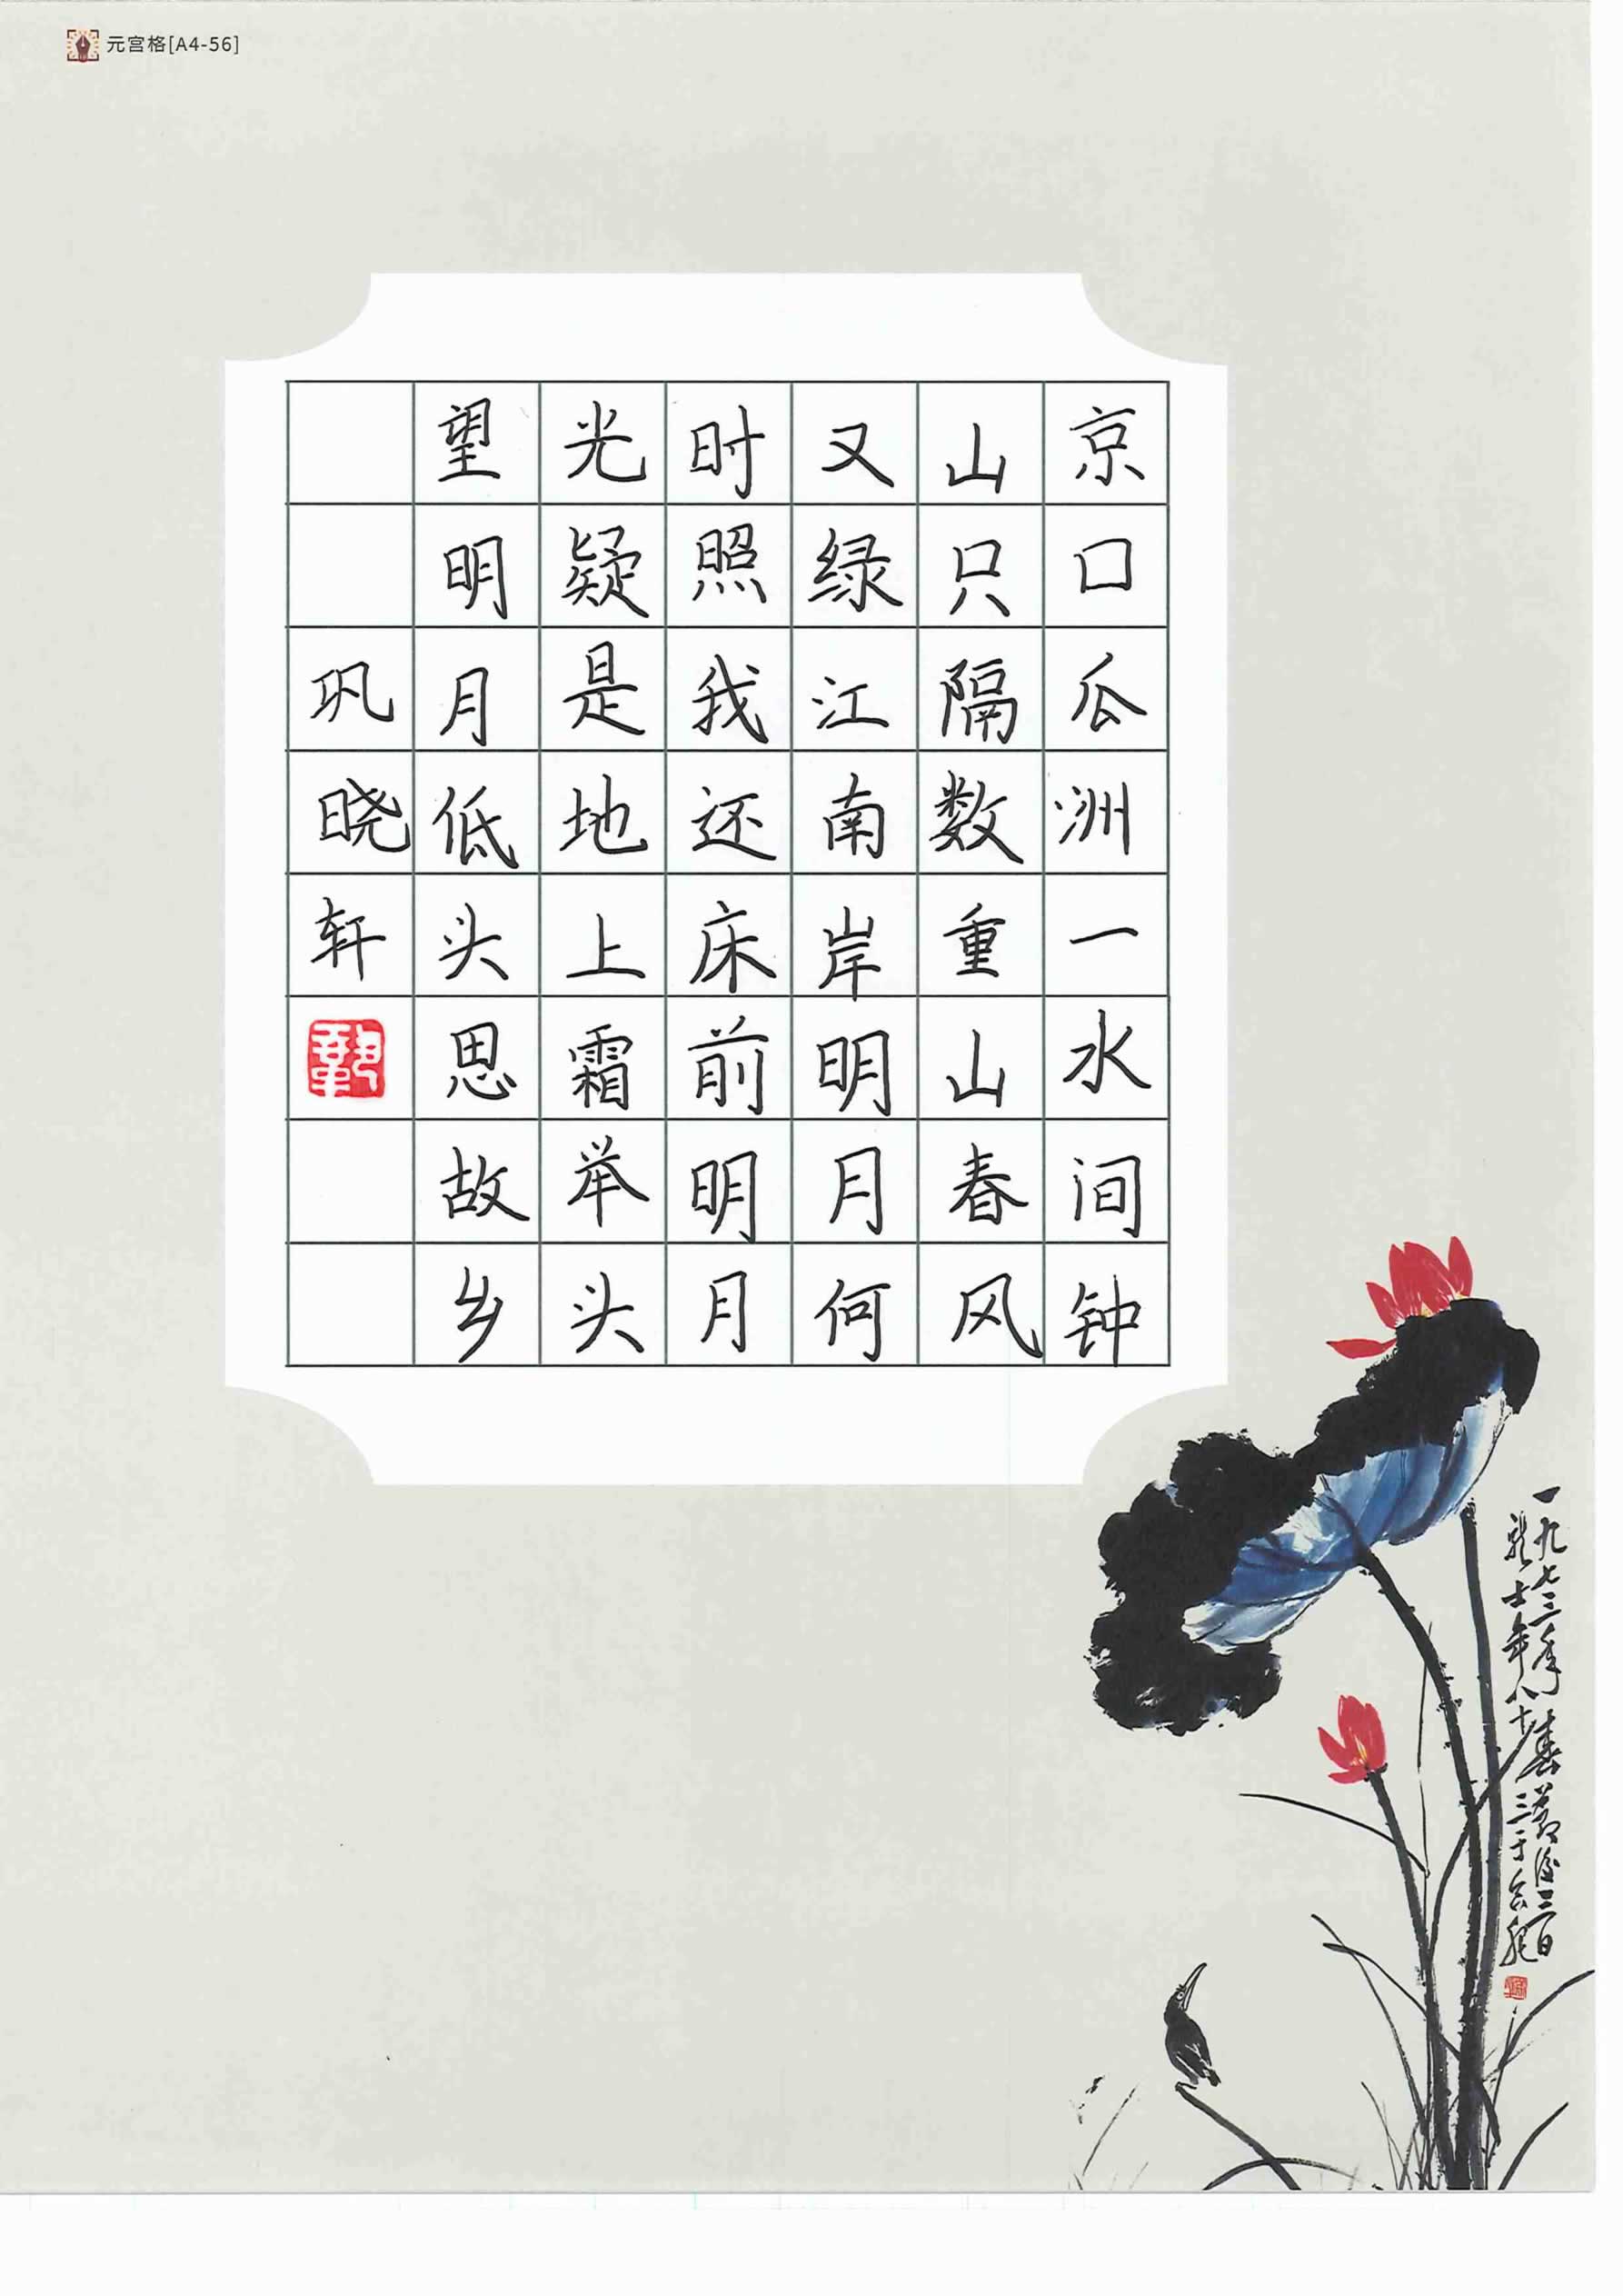 元宫格[A4-56]
京口瓜洲一水间钟
山只隔数重山春风
又绿江南岸明月何
时照我还床前明月
光疑是地上霜举头
望明月低头思故乡
巩晓轩
一九七三年春后三日
龙士年八十三于合肥